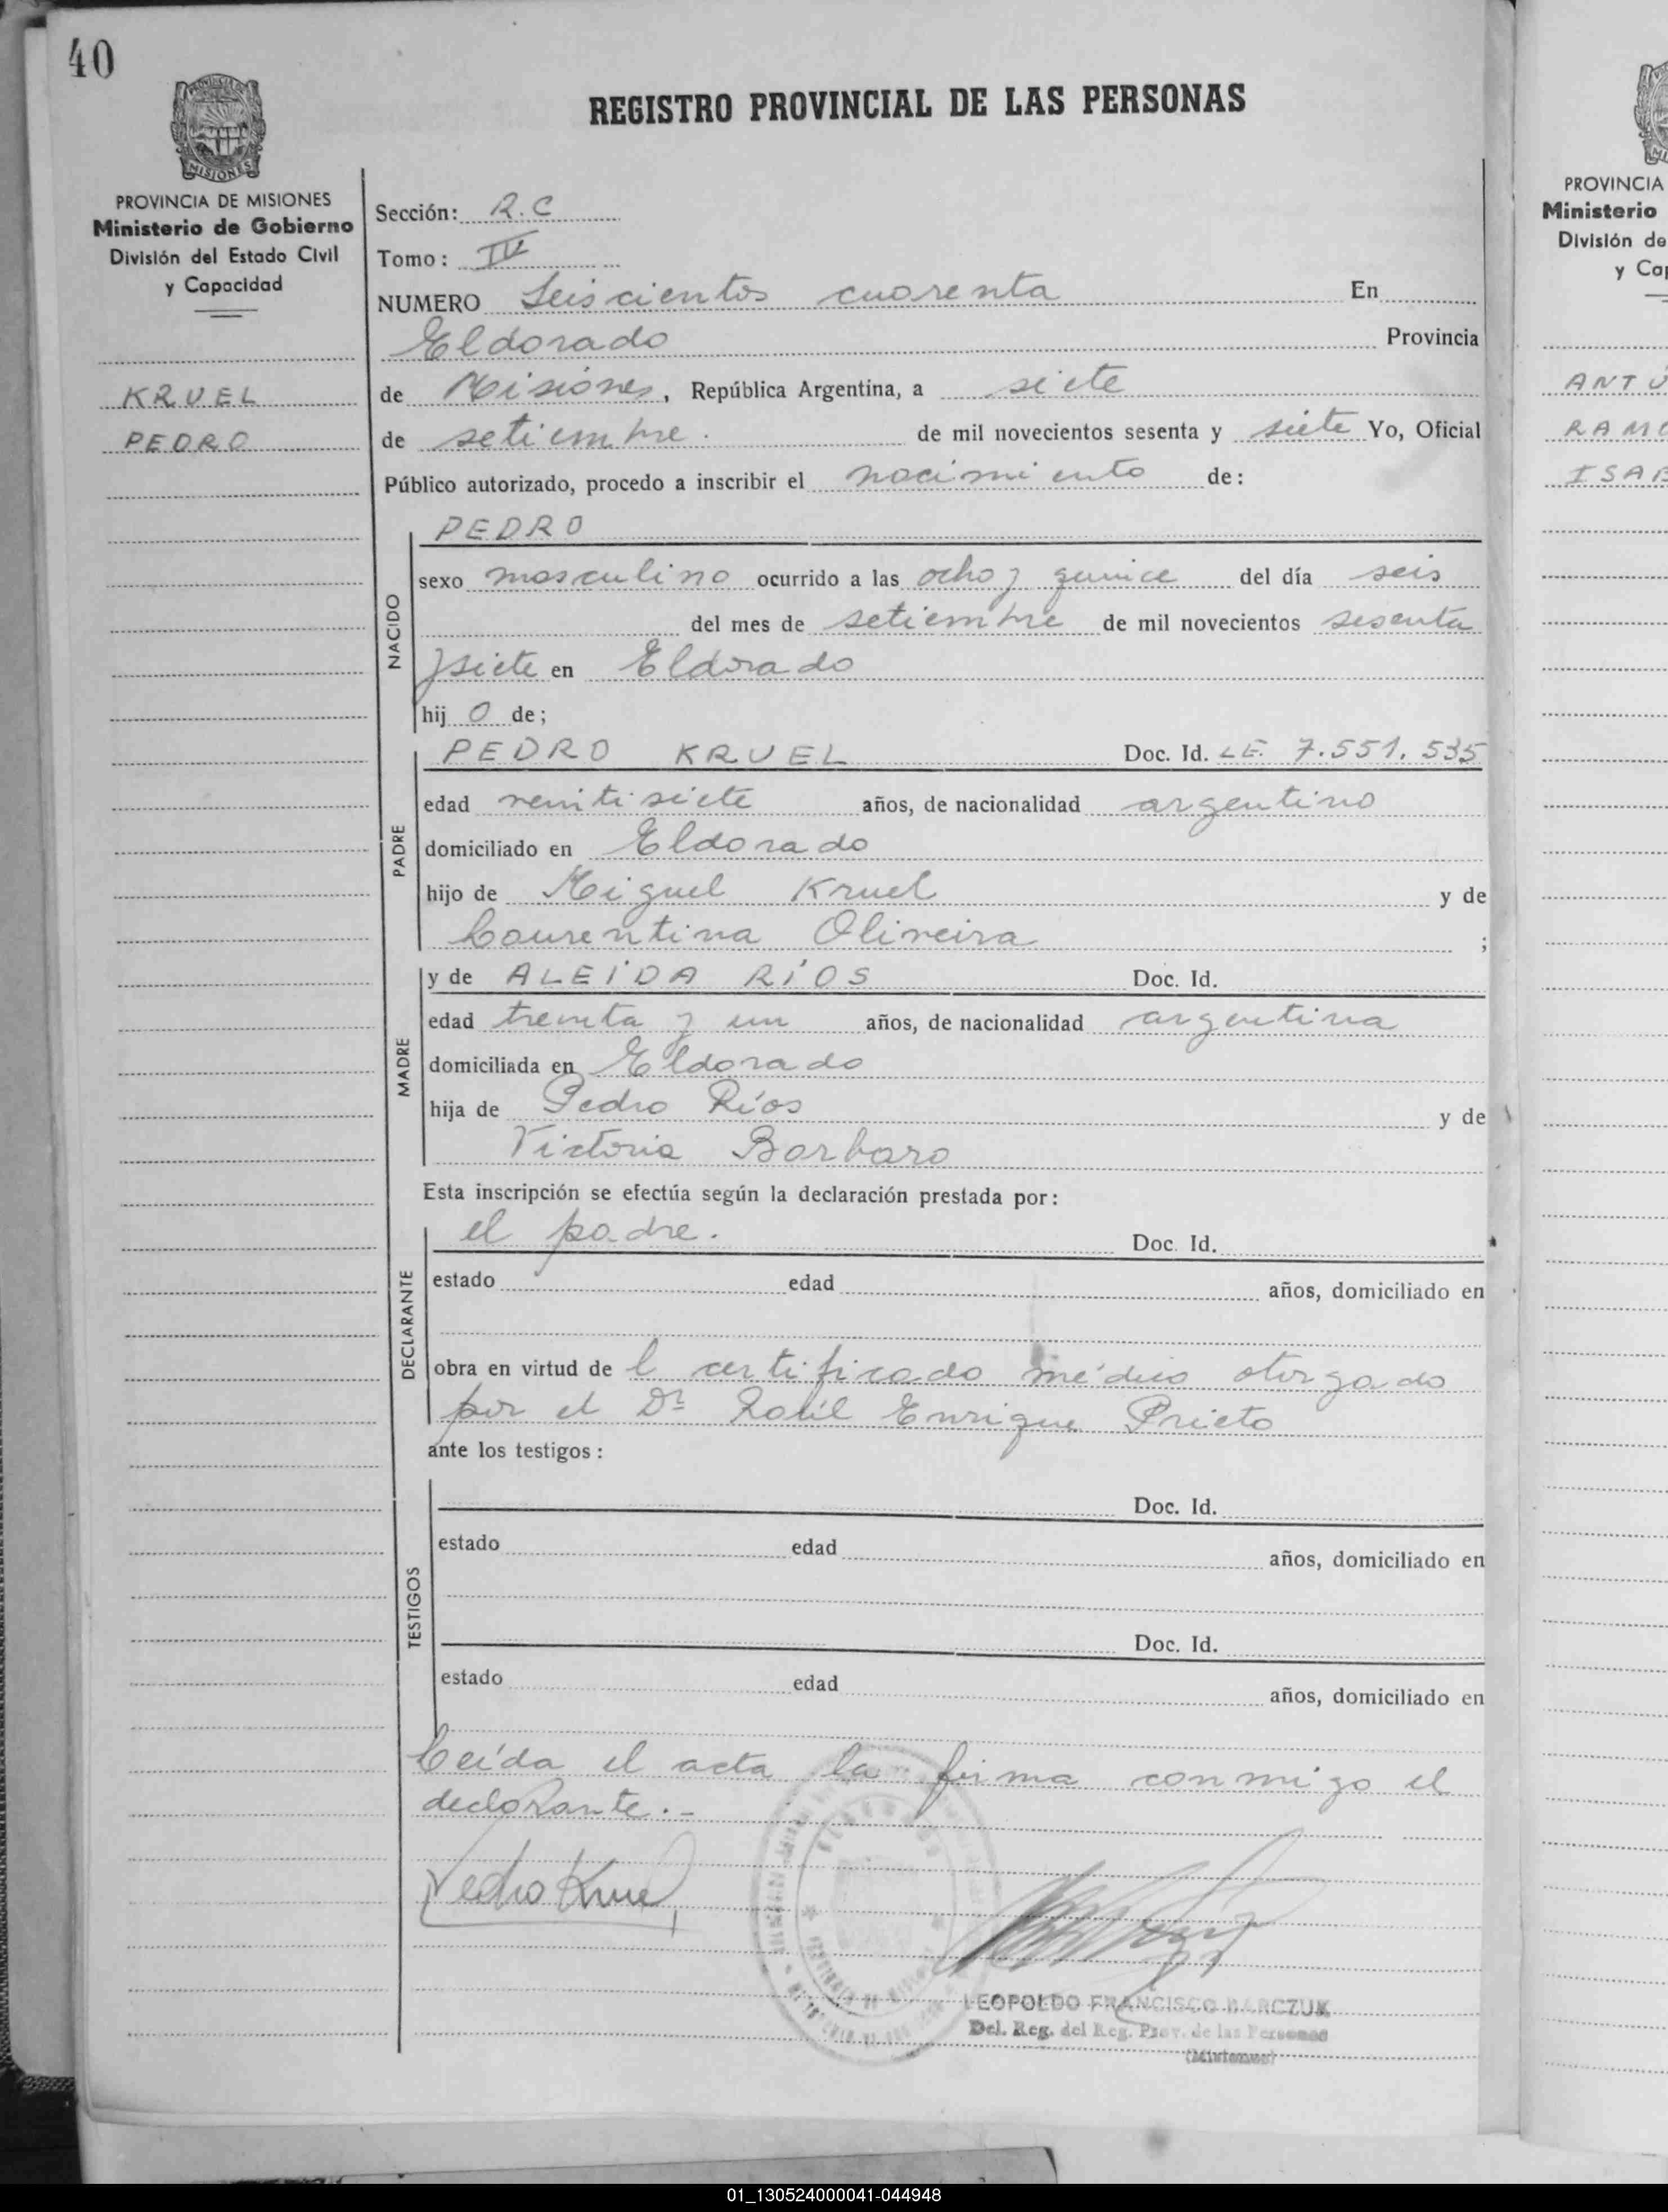 40
REGISTRO PROVINCIAL DE LAS PERSONAS
MISIONES
PROVINCIA DE MISIONES
Ministerio de Gobierno
División del Estado Civil
y Capacidad
KRUEL
PEDRO
Sección: R.C
Tomo: IV
NUMERO Seiscientos cuarenta En
Eldorado Provincia
de Misiones, República Argentina, a siete
de setiembre. de mil novecientos sesenta y siete Yo, Oficial
Público autorizado, procedo a inscribir el nacimiento de:
NACIDO
PEDRO
sexo masculino ocurrido a las ocho y quince del día seis
del mes de setiembre de mil novecientos sesenta
y siete en Eldorado
hij o de;
PADRE
PEDRO KRUEL Doc. Id. LE. 7.551.535
edad veintisiete años, de nacionalidad argentino
domiciliado en Eldorado
hijo de Miguel Kruel y de
Laurentina Oliveira ;
MADRE
y de ALEIDA RÍOS Doc. Id.
edad treinta y un años, de nacionalidad argentina
domiciliada en Eldorado
hija de Pedro Ríos y de
Victoria Barbaro
Esta inscripción se efectúa según la declaración prestada por:
DECLARANTE
el padre. Doc. Id.
estado edad años, domiciliado en
obra en virtud de l certificado médico otorgado
por el Dr Raúl Enrique Prieto
ante los testigos:
TESTIGOS
Doc. Id.
estado edad años, domiciliado en
Doc. Id.
estado edad años, domiciliado en
Leída el acta la firma conmigo el
declarante.-
Pedro Kruel
LEOPOLDO FRANCISCO BARCZUK
Del. Reg. del Reg. Prov. de las Personas
(Misiones)
PROVINCIA
Ministerio
División de
y Cap
ANTU
RAMO
ISAB
01_130524000041-044948